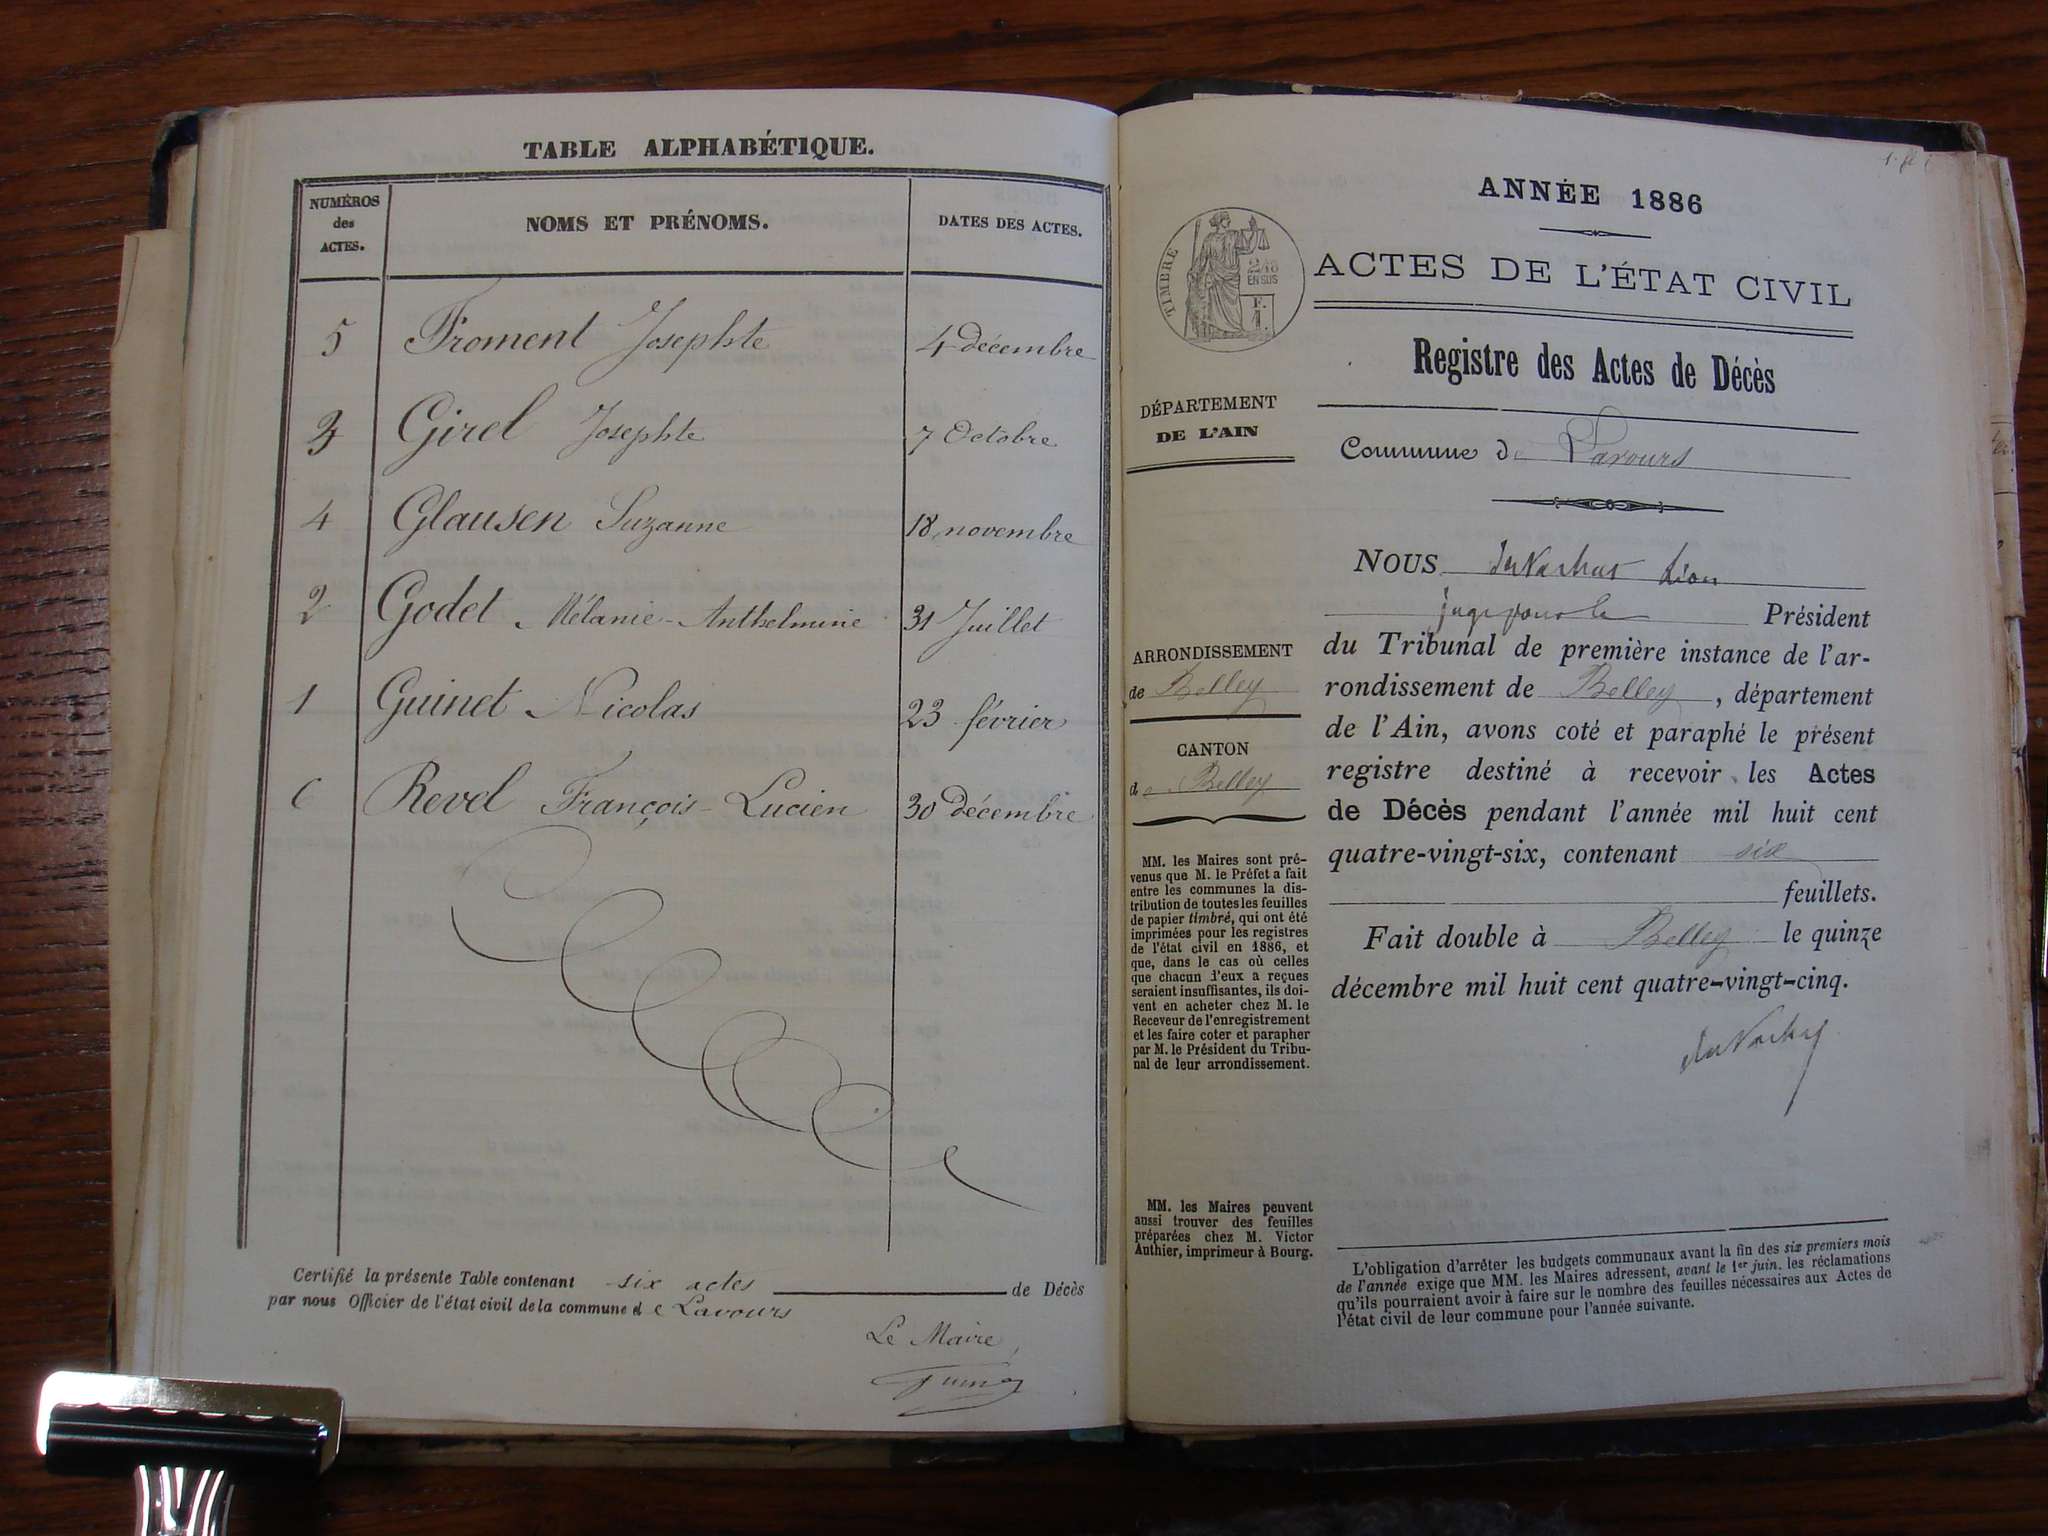 TABLE ALPHABÉTIQUE.
NUMÉROS
des
ACTES.
NOMS ET PRÉNOMS.
DATES DES ACTES.
5 Froment Josephte 4 décembre
3 Girel Josephte 7 Octobre
4 Glausen Suzanne 18 novembre
2 Godet Mélanie-Anthelmine 31 Juillet
1 Guinet Nicolas 23 février
6 Revel François-Lucien 30 décembre
Certifié la présente Table contenant six actes de Décès
par nous Officier de l'état civil de la commune de Lavours
Le Maire
ANNÉE 1886
TIMBRE
2/10
EN SUS
ACTES DE L'ÉTAT CIVIL
Registre des Actes de Décès
DÉPARTEMENT
DE L'AIN
Commune de Lavours
NOUS
juge pour le Président
du Tribunal de première instance de l'ar-
rondissement de Belley, département
de l'Ain, avons coté et paraphé le présent
registre destiné à recevoir les Actes
de Décès pendant l'année mil huit cent
quatre-vingt-six, contenant six
feuillets.
Fait double à Belley le quinze
décembre mil huit cent quatre-vingt-cinq.
ARRONDISSEMENT
de Belley
CANTON
de Belley
MM. les Maires sont pré-
venus que M. le Préfet a fait
entre les communes la dis-
tribution de toutes les feuilles
de papier timbré, qui ont été
imprimées pour les registres
de l'état civil en 1886, et
que, dans le cas où celles
que chacun d'eux a reçues
seraient insuffisantes, ils doi-
vent en acheter chez M. le
Receveur de l'enregistrement
et les faire coter et parapher
par M. le Président du Tribu-
nal de leur arrondissement.
MM. les Maires peuvent
aussi trouver des feuilles
préparées chez M. Victor
Authier, imprimeur à Bourg.
L'obligation d'arrêter les budgets communaux avant la fin des six premiers mois
de l'année exige que MM. les Maires adressent, avant le 1er juin, les réclamations
qu'ils pourraient avoir à faire sur le nombre des feuilles nécessaires aux Actes de
l'état civil de leur commune pour l'année suivante.